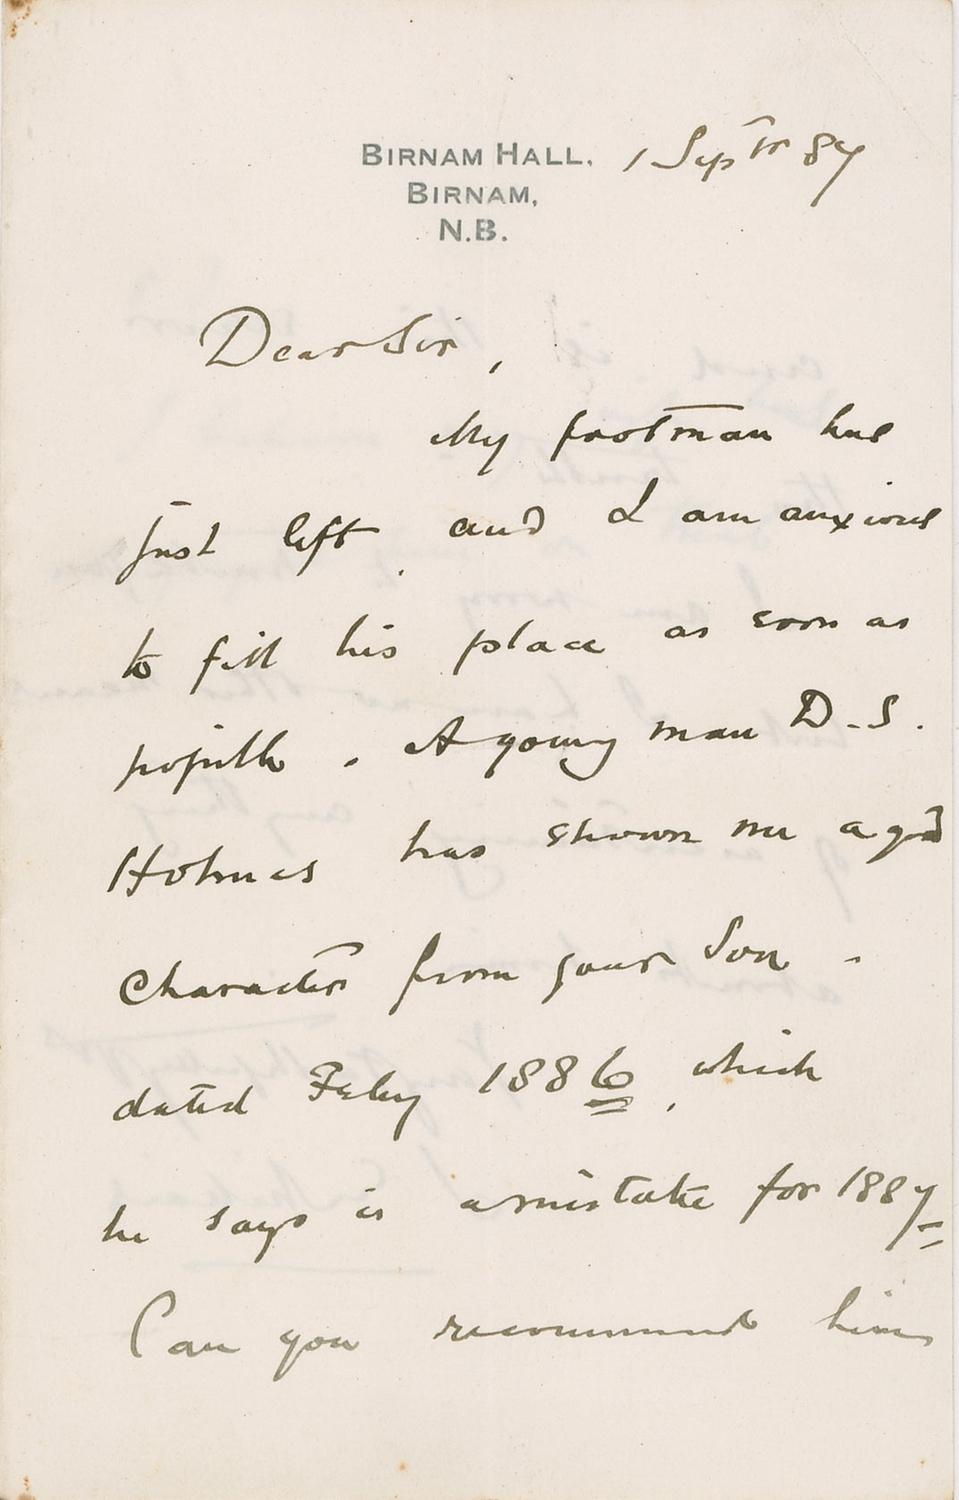 BIRNAM HALL. 1 Septr 87
BIRNAM,
N.B.
Dear Sir,
My footman has
just left and I am anxious
to fill his place as soon as
possible. A young man D.S.
Holmes has shown me a good
character from your Son -
dated Feby 1886, which
he says is a mistake for 1887
Can you recommend him